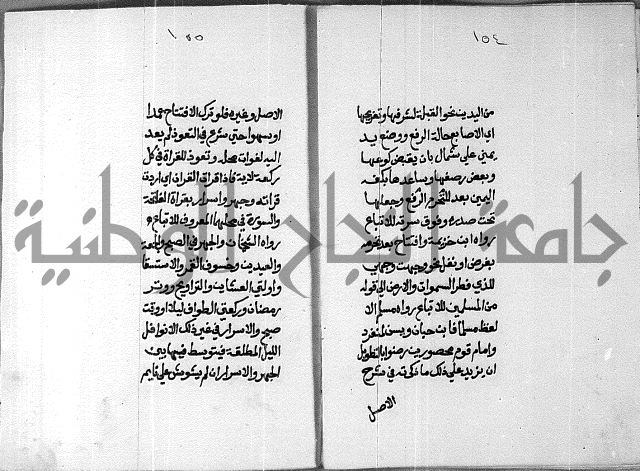 ١٥٤
من اليدين نحو القبلة لشرفها وتفريجها
اي الاصابع حالة الرفع ووضع يد
يمين على شمال بان يقبض كوعها
وبعض رصغها وساعدها بكفه
اليمين بعد التحرم الرفع وجعلها
تحت صدره وفوق سرته للاتباع
رواه ابن خزيمة وافتتاح بعد تحرم
بفرض او نفل نحو وجهت وجهي
للذي فطر السموات والارض الى قوله
من المسلمين للاتباع رواه مسلم الا
لفظ مسلما فابن حبان ويسن لمنفرد
وامام قوم محصورين رضوا بالتطويل
ان يزيد على ذلك ما ذكرته في شرح
الاصل
١٥٥
الاصل وغيره فلو ترك الافتتاح عمدا
او سهوا حتى شرع في التعوذ لم يعد
اليه لفوات محله وتعوذ للقراة في كل
ركعة لاية فاذا قرات القران اي اردت
قراته وجهر واسرار بقراة الفاتحة
والسورة في محلهما المعروف للاتباع
رواه الشيخان والجهر في الصبح والجمعة
والعيدين وخسوف القمر والاستسقا
واولتي العشاين والتراويح ووتر
رمضان وركعتي الطواف ليلا او وقت
صبح والاسرار في غير ذلك الا نوافل
الليل المطلقة فيتوسط فيها بين
الجهر والاسرار ان لم يشوش على نايم
جامعة النجاح الوطنية